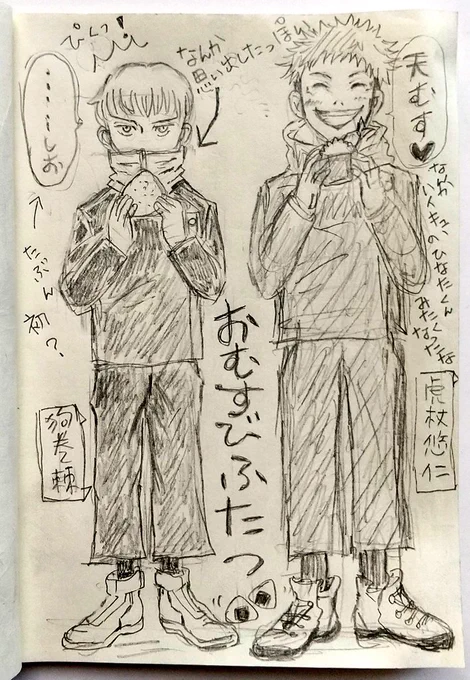 ぴくっ!
なんか
思い出したっ
天むす♥
……しお
↑
たぶん
初?
なんか
ハイキューのひなたくん
みたくなったな
おむすびふたつ
狗巻棘
虎杖悠仁